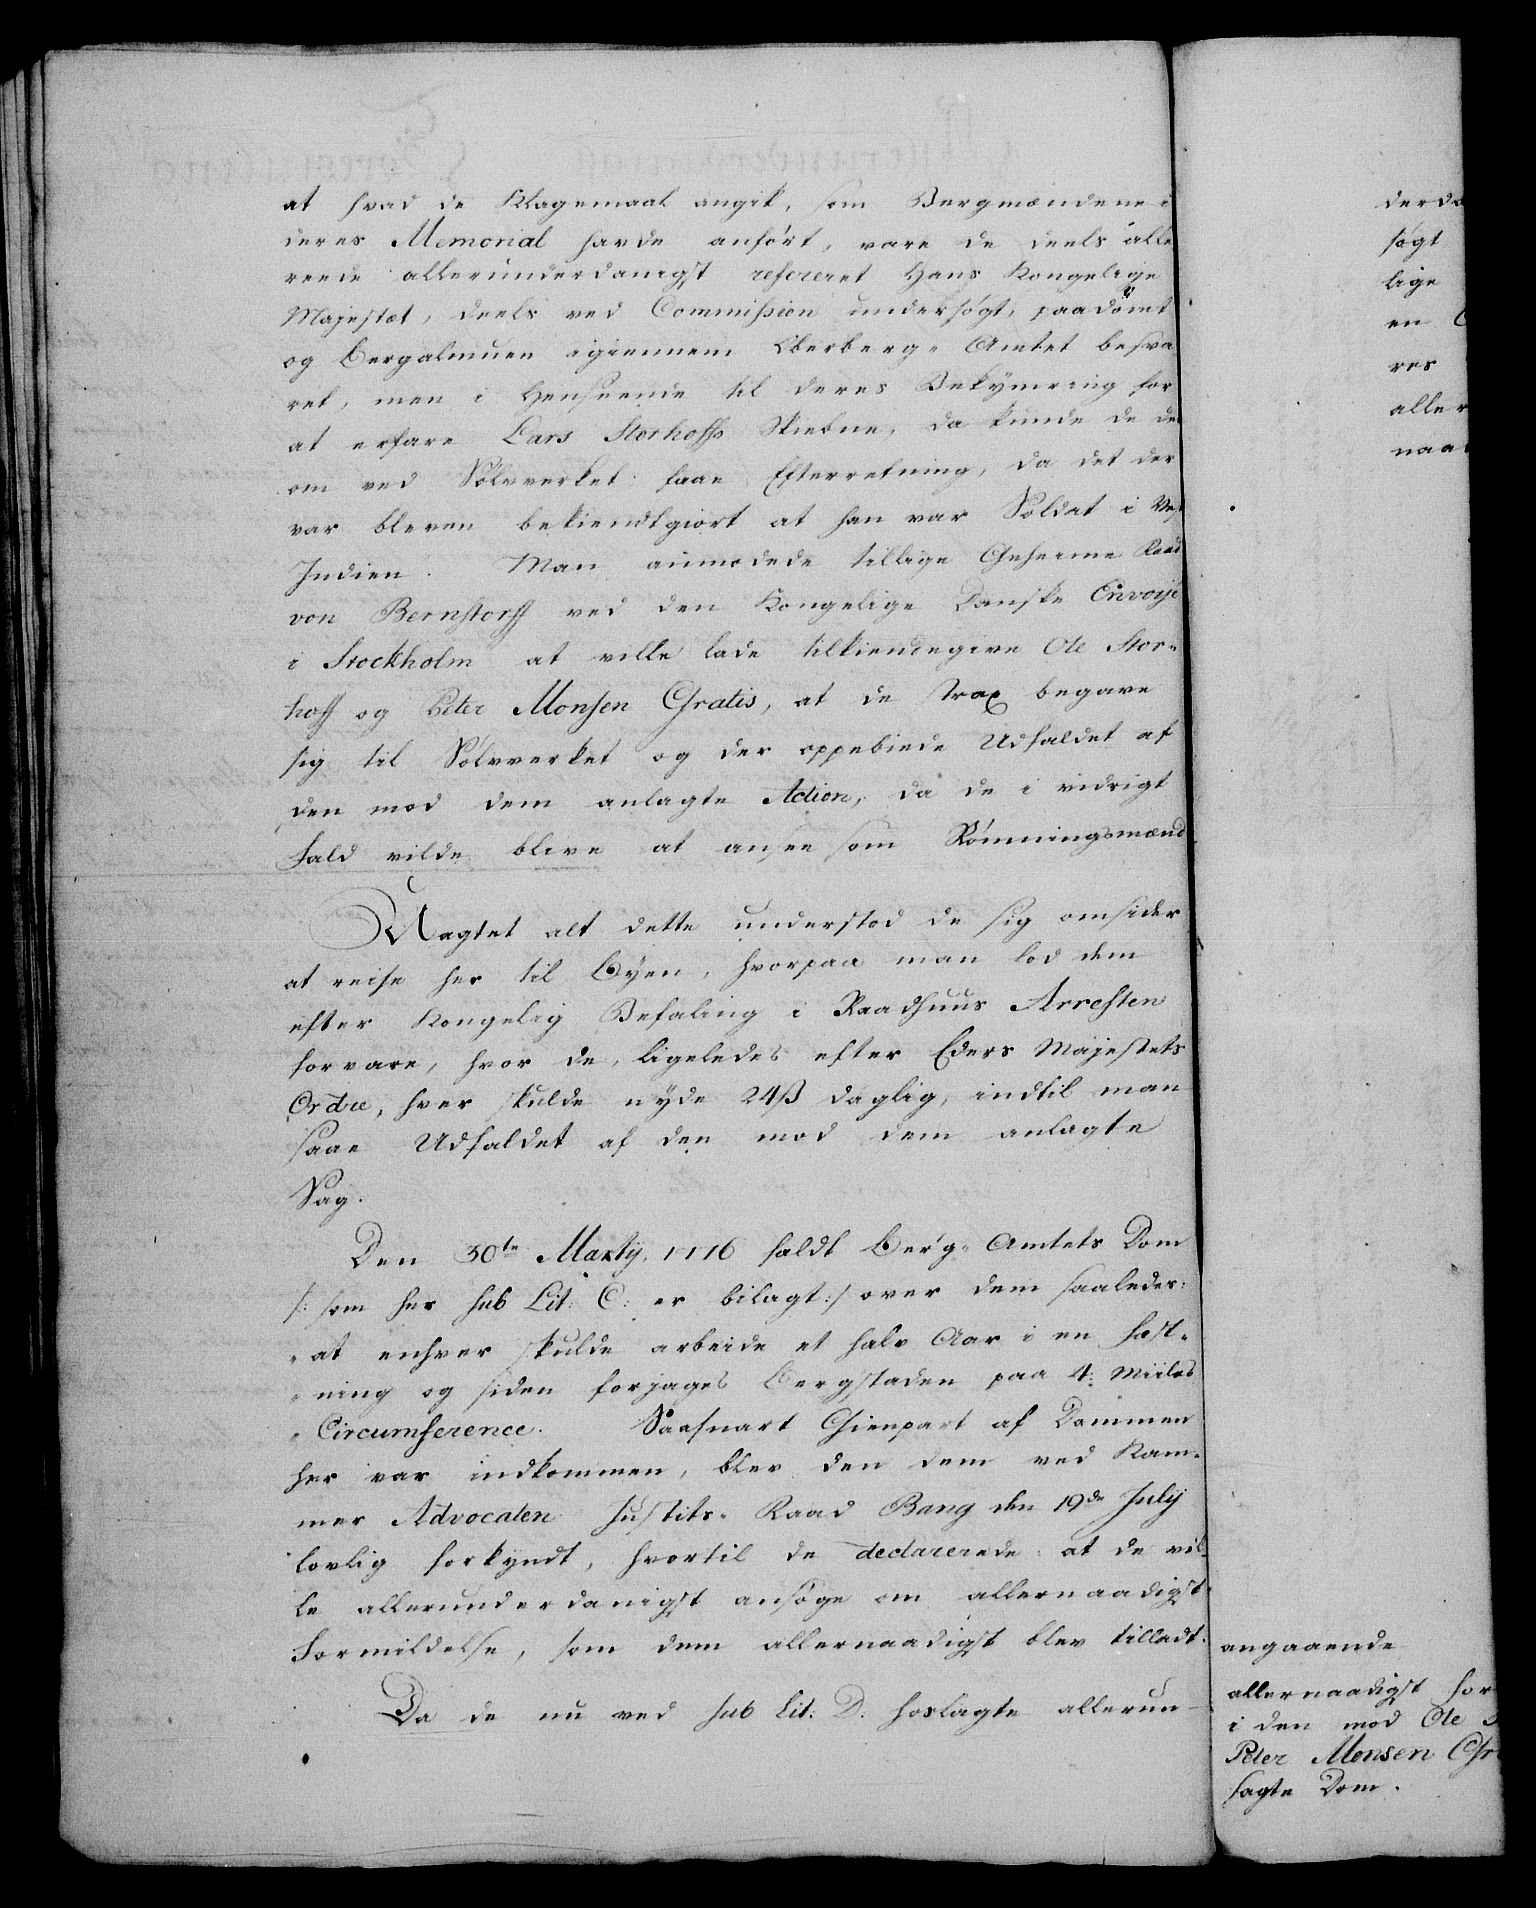 at hvad de Klagemaal angik, som Bergmændene i
deres Memorial havde anført, vare de deels alle
reede allerunderdanigst refereret Hans Kongelige
Majestæt, deels ved Commission undersøgt, paadömt
og Bergalmuen igiennem Oberberg-Amtet besva
ret, men i Henseende til deres Bekymring for
at erfare Lars Storhoffs Skiebne, da kunde de der
om ved Sölvverket faae Efterretning, da det der
var bleven bekiendtgiort at han var Soldat i Vest
Indien. Man anmodede tillige Geheime Raad
von Bernstorff ved den Kongelige Danske Envoyé
i Stockholm at ville lade tilkiendegive Ole Stor-
hoff og Peter Monsen Gratis, at de strax begave
sig til Sölvverket og der oppebiede Udfaldet af
den mod dem anlagte Action, da de i vidrigt
Fald vilde blive at ansee som Römningsmænd
Uagtet alt dette understod de sig omsider
at reise her til Byen, hvorpaa man lod dem
efter Kongelig Befaling i Raadhuus Arresten
forvare, hvor de, ligeledes efter Eders Majestets
Ordre, hver skulde nyde 24ß daglig, indtil man
saae Udfaldet af den mod dem anlagte
Sag.
Den 30te Martij 1776 faldt Berg-Amtets Dom
/: som her sub Lit: C: er bilagt :/ over dem saaledes:
"at enhver skulde arbeide et halv Aar i en Fæst-
"ning og siden forjages Bergstaden paa 4: Miiles
"Circumference. Saasnart Gienpart af Dommen
her var indkommen, blev den dem ved Kam-
mer Advocaten Justits-Raad Bang den 19de July
lovlig forkyndt, hvortil de declarerede at de vil-
le allerunderdanigst ansøge om allernaadigst
Formildelse, som dem allernaadigst blev tilladt.
Da de nu ved sub Lit: D: hoslagte allerun-
derda
søgt
lige
en
res
aller
naa
angaaende
allernaadigst for
i den mod Ole
Peter Monsen Gr
sagte Dom.